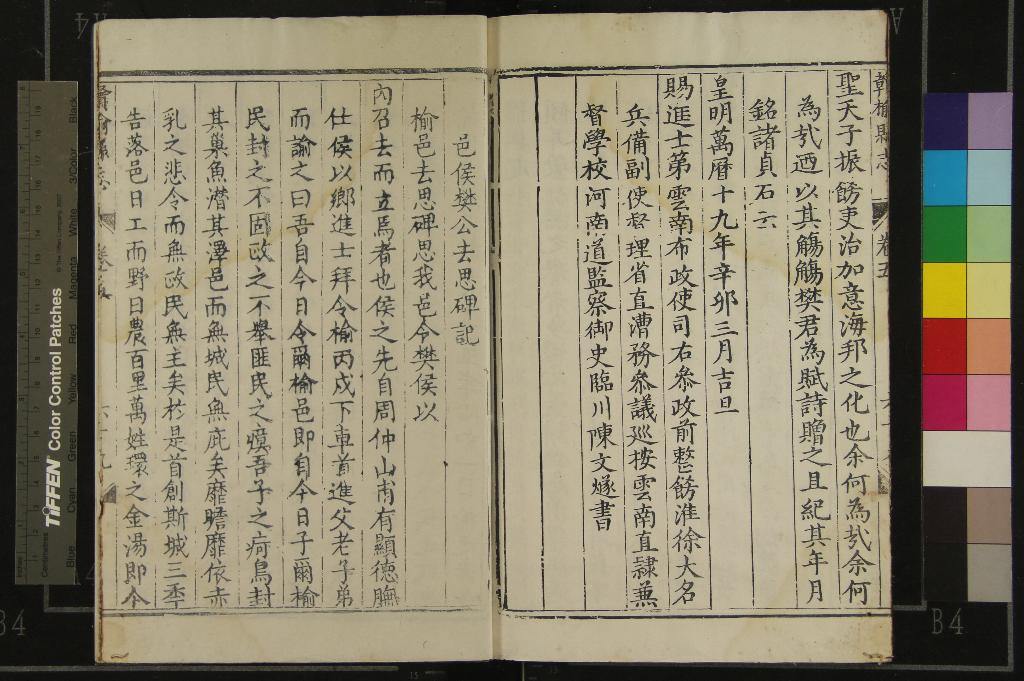 贛榆縣志 卷五
聖天子振飭吏治加意海邦之化也余何為㢤余何
為㢤迺以其觴觴樊君為賦詩贈之且紀其年月
銘諸貞石云
皇明萬曆十九年辛卯三月吉旦
賜進士第雲南布政使司右叅政前整飭淮徐大名
兵備副使督理省直漕務叅議巡按雲南直隷兼
督學校河南道監察御史臨川陳文燧書
邑侯樊公去思碑記
榆邑去思碑思我邑令樊侯以
內召去而立焉者也侯之先自周仲山甫有顯德
仕侯以鄉進士拜令榆丙戍下車首進父老子弟
而諭之曰吾自今日令爾榆邑即自今日子爾榆
民封之不固政之不舉匪民之瘼吾子之疴鳥封
其巢魚潛其澤邑而無城民無庇矣靡瞻靡依赤
乳之悲令而無政民無主矣於是首創斯城三季
告落邑日工而野日農百里萬姓環之金湯即今
贛榆縣志 卷五 六十九
Black
3/Color
White
Magenta
Red
Yellow
Green
Cyan
Blue
TIFFEN Color Control Patches
Inches
Centimetres
A4
B4
B4